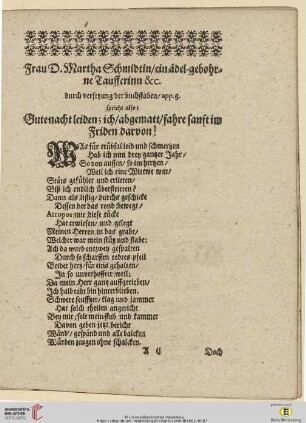 Frau D. Martha Schmidtin/ein ädel-gebohr-
ne Taufferinn &c.
durch versetzung der buchstaben/app.g.
spricht also:
Gute nacht leiden; ich/abgematt/fahre sanft im
Friden darvon!
WAs für trübsal leid und schmertzen
Hab ich nun drey gantzer Jahr/
So von aussen/so im hertzen/
Weil ich eine Witwe war/
Stäts gefühlet und erlitten/
Biß ich endlich überstritten?
Dann als listig/durchs geschicke
Dessen der das rond bewegt/
Atropos mir diese tücke
Hat erwiesen/und gelegt
Meinen Herren in das grabe/
Welcher war mein stütz und stabe:
Ach da ward entzwey gespalten
Durch so scharffen todtes-pfeil
Beider hertz/für eins gehalten/
In so unverhoffter weil;
Da mein Hertz gantz auffgerieben/
Ich halbtodt bin hinterblieben.
Schwere seufftzer/klag und jammer
Hat solch theilen angericht
Bey mir; solt mein stub und kammer
Davon geben jetzt bericht
Wänd/gespänd und alle balcken
Würden zeugen ohne schalcken.
A ij
Doch
UNIVERSITÄTS-
BIBLIOTHEK
HEIDELBERG
© Universitätsbibliothek Heidelberg
Baden-Württemberg